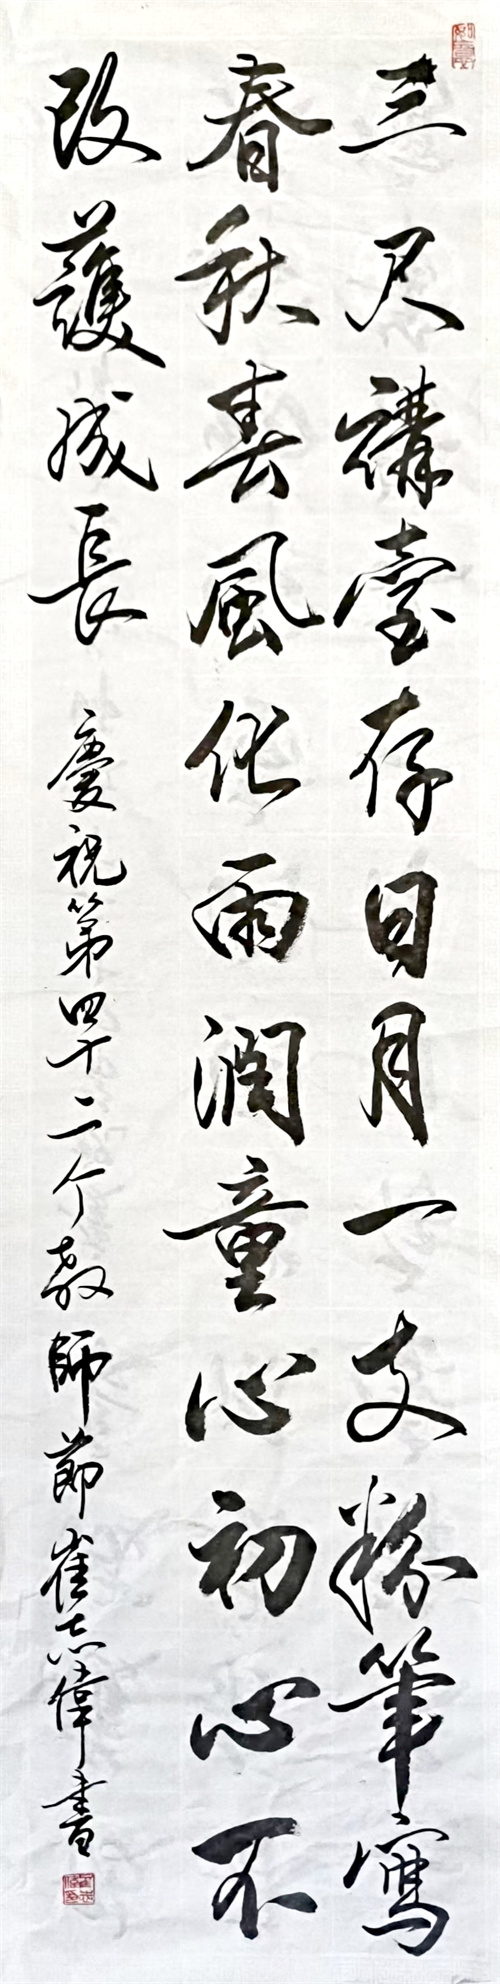 三尺講臺存日月一支粉筆寫
春秋春風化雨潤童心初心不
改護成長
慶祝第四十二个教師節崔志偉書